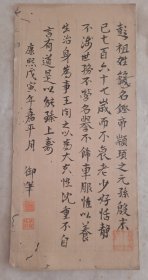 彭祖姓籛名鏗帝顓頊之元孫殷末
已七百六十七歲而不衰老少好恬靜
不恤世務不營名譽不飾車服惟以養
生治身為事王聞之以為大夫性沈重不自
言有道是以能臻上壽
康熙戊寅年嘉平月 御筆